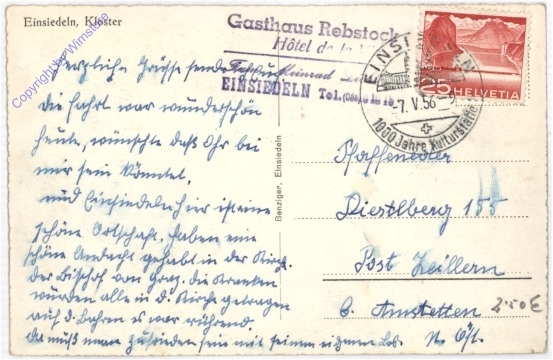 Einsiedeln, Kloster
Copyright by Wimstore
Gasthaus Rebstock
Hôtel de la
EINSIEDELN Tel.
EINSIEDELN
-7. V. 56 -
1000 Jahre Kulturstätte
25 HELVETIA
Benziger, Einsiedeln
Herzliche Grüsse sende
Die Fahrt war wunderschön
heute, wünschte daß Ihr bei
mir sein könntet,
und Einsiedeln hier ist eine
schöne Ortschaft, haben eine
schöne Andacht gehabt in der Kirche.
der Bischof von Graz, die Kranken
wurden alle in d. Kirche getragen
auf d. Bahren es war rührend.
Da muß man zufrieden sein mit seinem eigenen Los.
Pfaffeneder
Diestlberg 155
Post Zeillern
b. Amstetten
N. Öst.
2.50 €